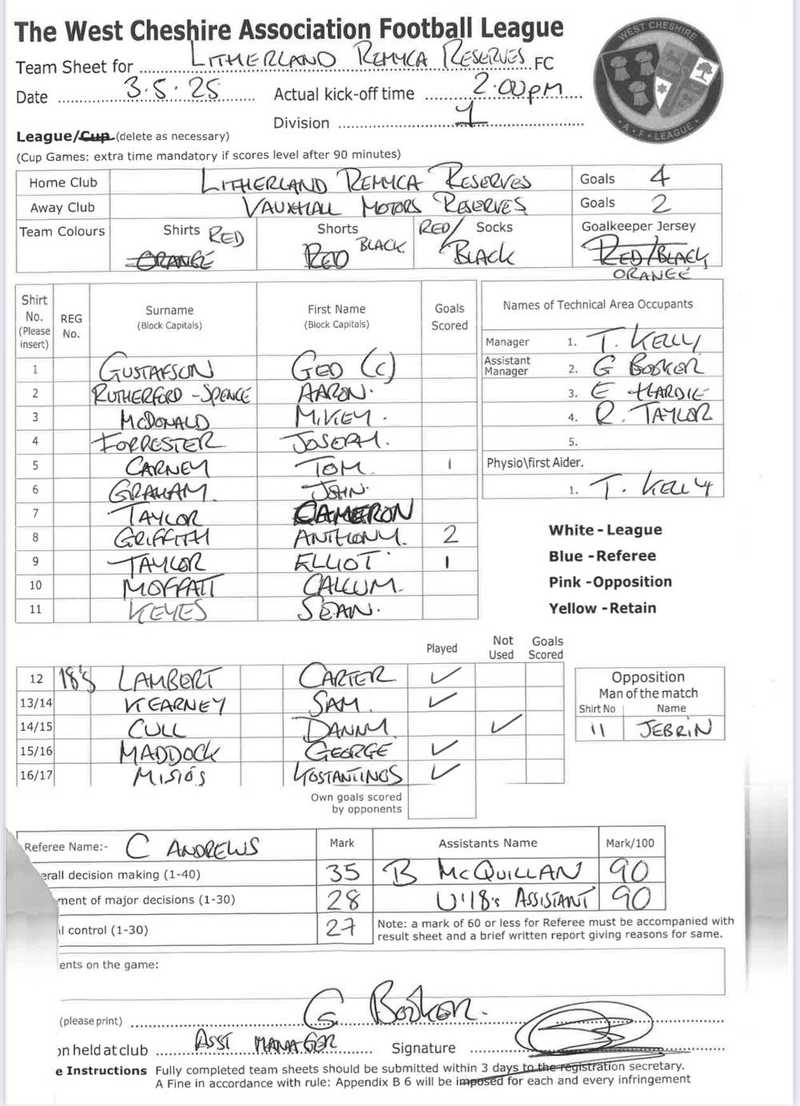 The West Cheshire Association Football League
Team Sheet for LITHERLAND REMYCA RESERVES FC
Date 3.5.25 Actual kick-off time 2:00pm
Division 1
League/Cup (delete as necessary)
(Cup Games: extra time mandatory if scores level after 90 minutes)
WEST CHESHIRE
A.F. LEAGUE
Home Club LITHERLAND REMYCA RESERVES Goals 4
Away Club VAUXHALL MOTORS RESERVES Goals 2
Team Colours Shirts RED ORANGE Shorts RED BLACK Socks RED/BLACK Goalkeeper Jersey RED/BLACK ORANGE
Shirt No. (Please insert) REG No. Surname (Block Capitals) First Name (Block Capitals) Goals Scored
1 GUSTAFSON GED (C)
2 RUTHERFORD-SPENCE AARON.
3 McDONALD MIKEY.
4 FORRESTER JOSEPH.
5 CARNEY TOM 1
6 GRAHAM JOHN.
7 TAYLOR CAMERON
8 GRIFFITH ANTHONY. 2
9 TAYLOR ELLIOT 1
10 MOFFATT CALLUM.
11 KEYES SEAN.
Names of Technical Area Occupants
Manager 1. T. KELLY
Assistant Manager 2. G BOOKER
3. E HARDIE
4. R. TAYLOR
5.
Physio\first Aider.
1. T. KELLY
White - League
Blue - Referee
Pink - Opposition
Yellow - Retain
Played Not Used Goals Scored
12 18's LAMBERT CARTER ✓
13/14 KEARNEY SAM. ✓
14/15 CULL DANNY. ✓
15/16 MADDOCK GEORGE ✓
16/17 MISIOS KOSTANTINOS ✓
Own goals scored by opponents
Opposition
Man of the match
Shirt No Name
11 JEBRIN
Referee Name:- C ANDREWS Mark Assistants Name Mark/100
erall decision making (1-40) 35 B McQUILLAN 90
ment of major decisions (1-30) 28 U'18's ASSISTANT 90
l control (1-30) 27 Note: a mark of 60 or less for Referee must be accompanied with
result sheet and a brief written report giving reasons for same.
ents on the game:
(please print) G BOOKER.
on held at club ASST MANAGER Signature
e Instructions Fully completed team sheets should be submitted within 3 days to the registration secretary.
A Fine in accordance with rule: Appendix B 6 will be imposed for each and every infringement